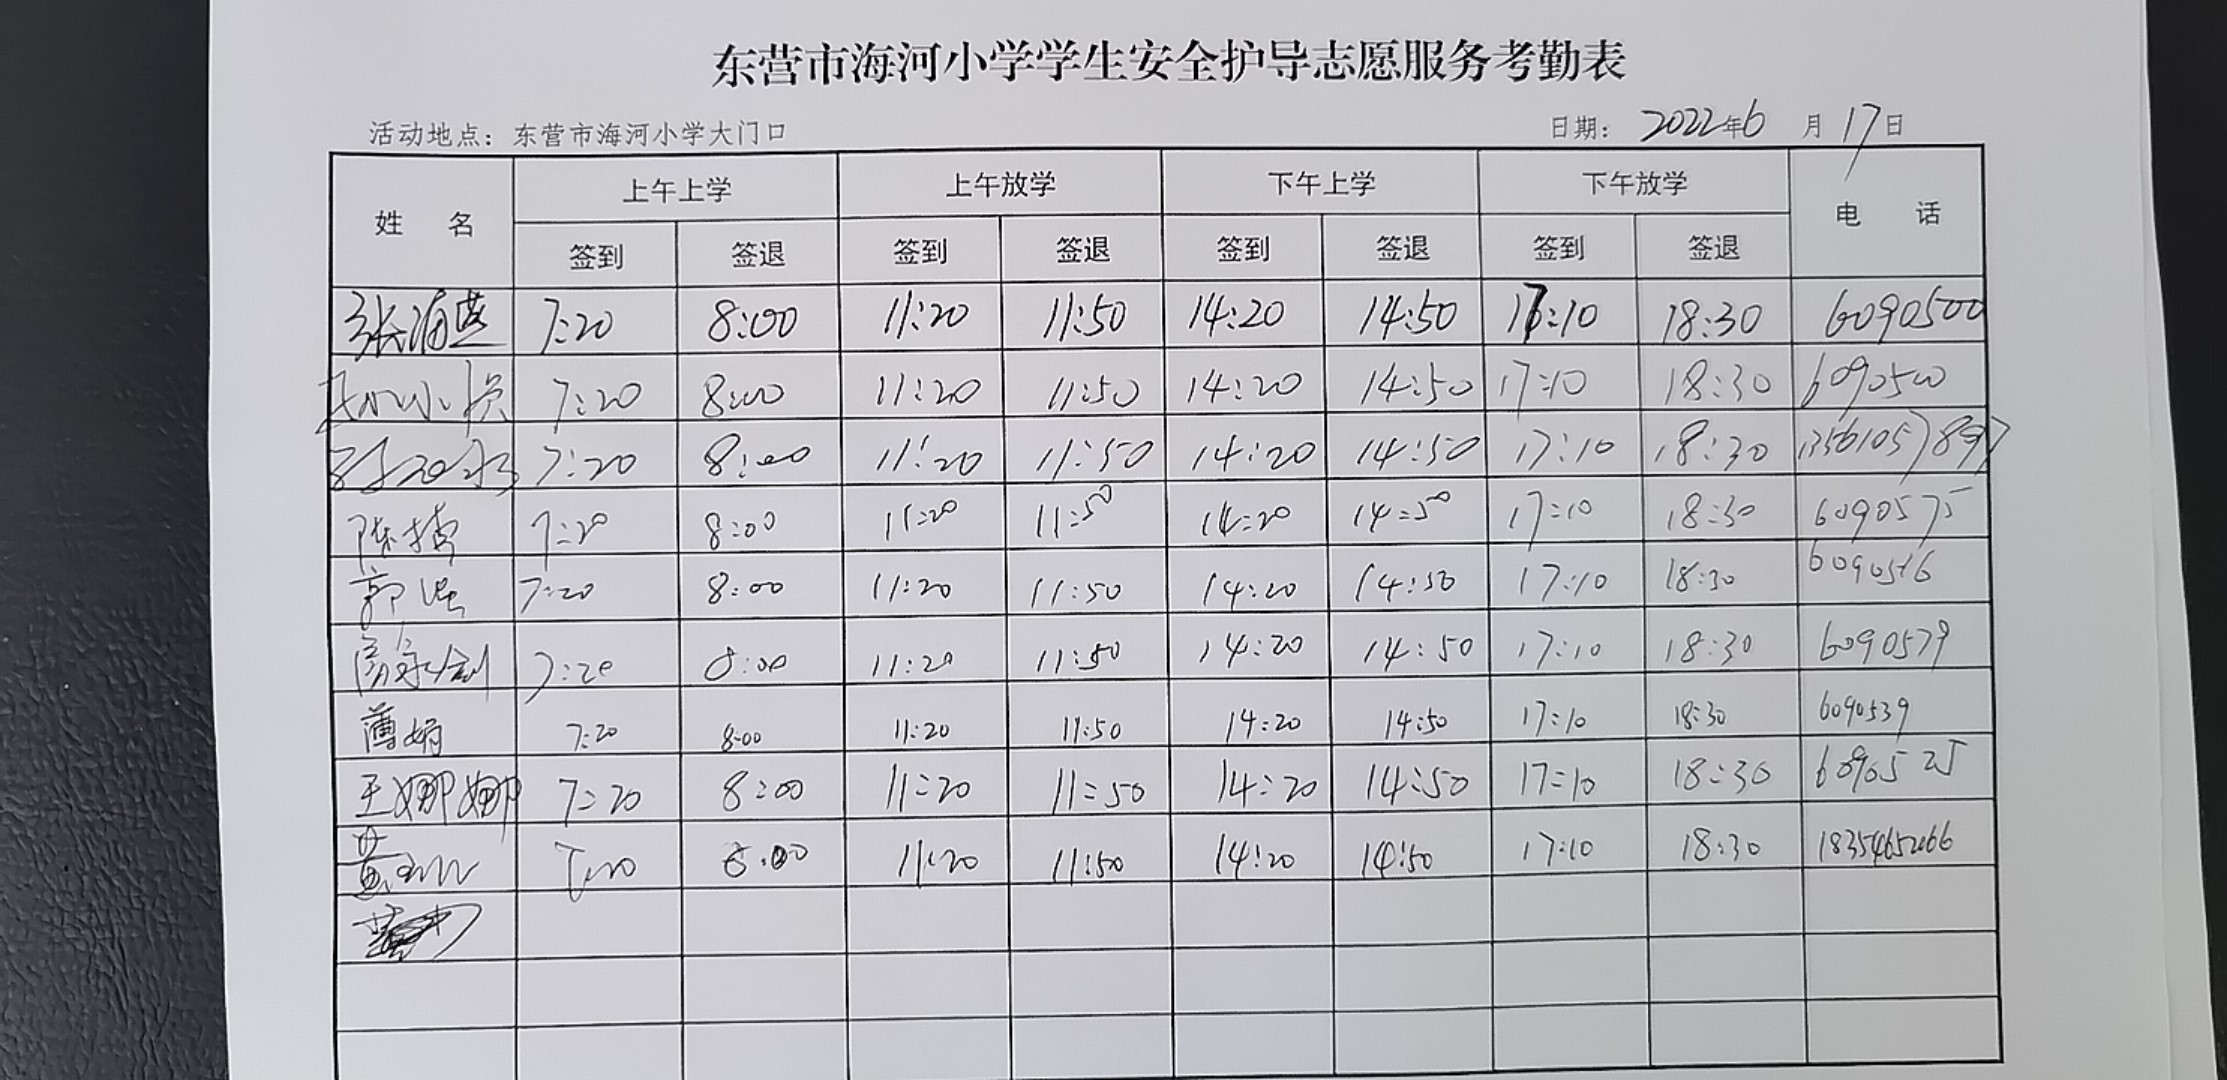 东营市海河小学学生安全护导志愿服务考勤表
活动地点：东营市海河小学大门口 日期：2022年6月17日
姓 名 上午上学 上午放学 下午上学 下午放学 电 话
签到 签退 签到 签退 签到 签退 签到 签退
7:20 8:00 11:20 11:50 14:20 14:50 17:10 18:30 6090500
7:20 8:00 11:20 11:50 14:20 14:50 17:10 18:30 6090500
7:20 8:00 11:20 11:50 14:20 14:50 17:10 18:30 13561057897
7:20 8:00 11:20 11:50 14:20 14:50 17:10 18:30 6090575
7:20 8:00 11:20 11:50 14:20 14:50 17:10 18:30
7:20 8:00 11:20 11:50 14:20 14:50 17:10 18:30 6090579
薄娟 7:20 8:00 11:20 11:50 14:20 14:50 17:10 18:30 6090539
王娜娜 7:20 8:00 11:20 11:50 14:20 14:50 17:10 18:30 6090525
8:00 11:20 11:50 14:20 14:50 17:10 18:30